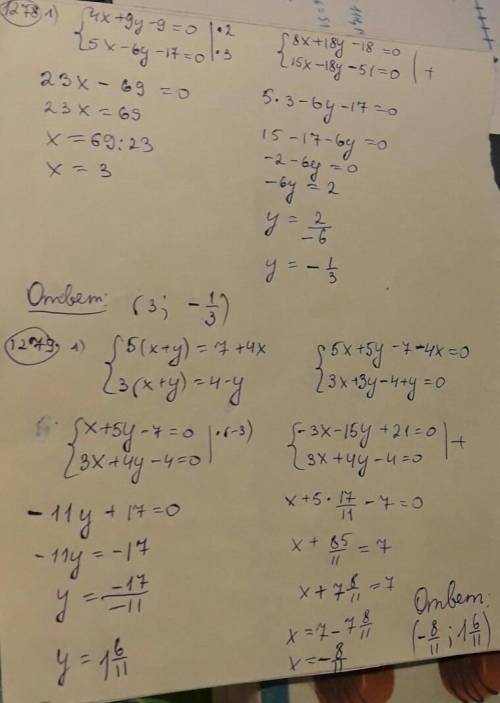 1278 1) {4x+9y-9=0 |·2
{5x-6y-17=0 |·3
{8x+18y-18=0
{15x-18y-51=0 | +
23x-69=0
23x=69
x=69:23
x=3
5·3-6y-17=0
15-17-6y=0
-2-6y=0
-6y=2
y=2/-6
y=-1/3
Ответ: (3; -1/3)
1279. 1) {5(x+y)=7+4x
{3(x+y)=4-y
{5x+5y-7-4x=0
{3x+3y-4+y=0
{x+5y-7=0 |·(-3)
{3x+4y-4=0
{-3x-15y+21=0 | +
{3x+4y-4=0
-11y+17=0
-11y=-17
y=-17/-11
y=1 6/11
x+5·17/11-7=0
x+85/11=7
x+7 8/11=7
x=7-7 8/11
x=-8/11
Ответ:
(-8/11; 1 6/11)